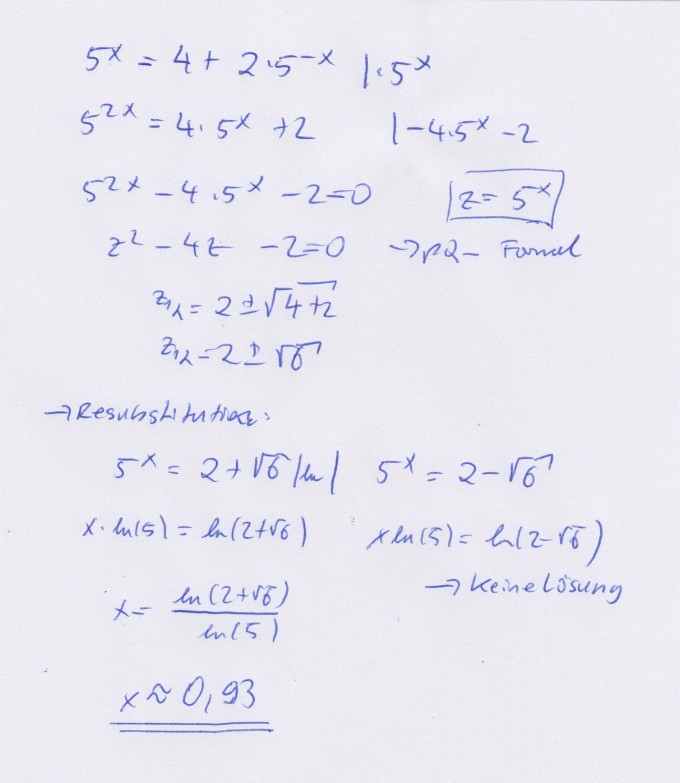 5ˣ = 4 + 2·5⁻ˣ |·5ˣ
5²ˣ = 4·5ˣ +2 |-4·5ˣ -2
5²ˣ - 4·5ˣ - 2=0 z= 5ˣ
z² - 4z - 2=0 → PQ- Formel
z₁,₂ = 2 ± √4+2
z₁,₂ = 2 ± √6
→ Resubstitution:
5ˣ = 2+√6 |ln| 5ˣ = 2-√6
x·ln(5) = ln(2+√6) x ln(5) = ln(2-√6)
→ Keine Lösung
x= ln(2+√6) / ln(5)
x≈ 0,93